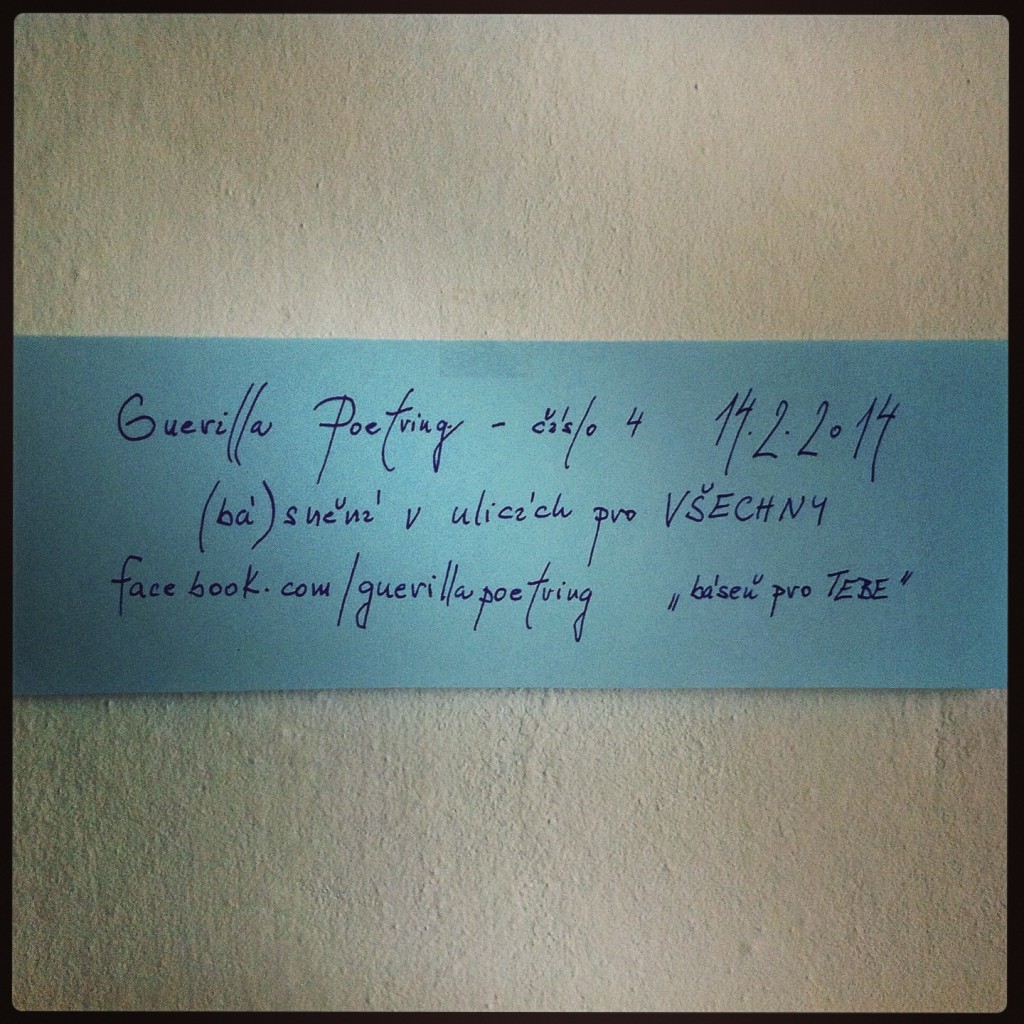 Guerilla Poetring - číslo 4 14.2.2014
(bá)snění v ulicích pro VŠECHNY
facebook.com/guerillapoetring „báseň pro TEBE"